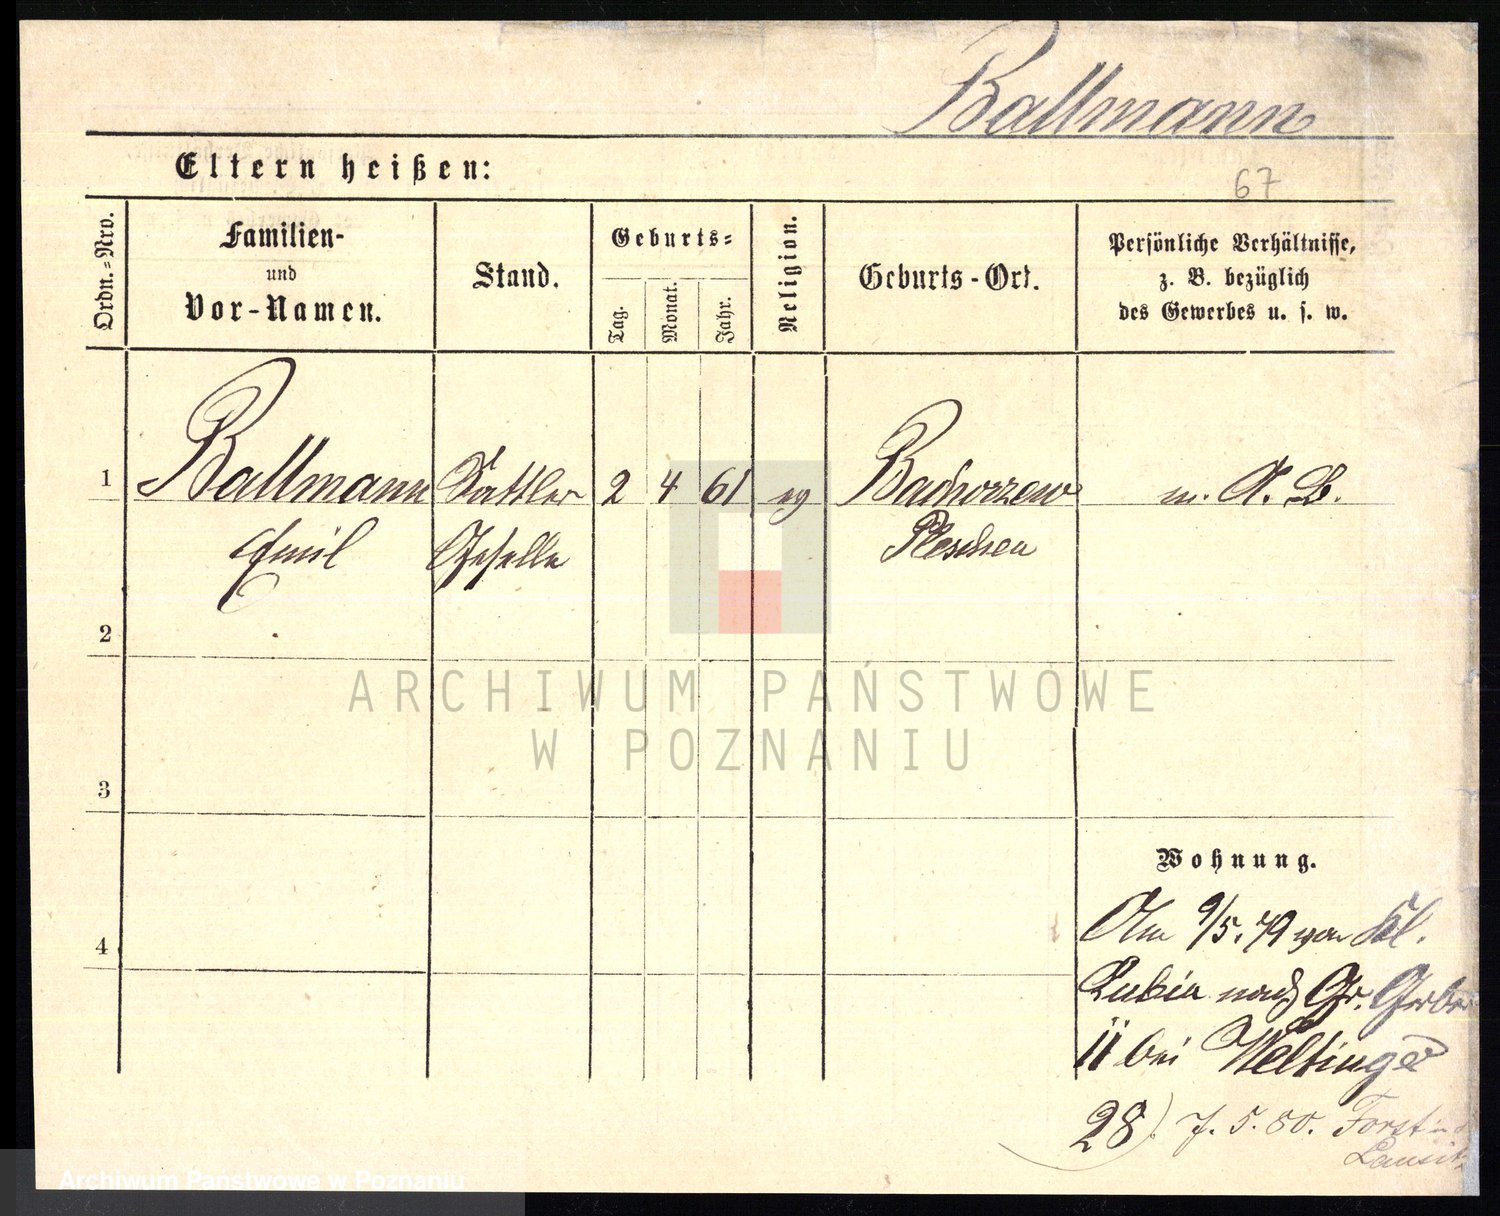 Ballmann
Eltern heißen:
67
Ordn.=Nro.
Familien-
und
Vor-Namen.
Stand.
Geburts=
Tag.
Monat.
Jahr.
Religion.
Geburts-Ort.
Persönliche Verhältnisse,
z. B. bezüglich
des Gewerbes u. s. w.
1
Ballmann Sattler 2 4 61 ev Bachorzew m. A. B.
Emil Geselle Pleschen
2
ARCHIWUM PAŃSTWOWE
W POZNANIU
3
Wohnung.
4
Am 9/5. 79 von Kl.
nach Gr. Gerber
11 bei
28). 7. 5. 80. Forst i.
Lausitz
Archiwum Państwowe w Poznaniu